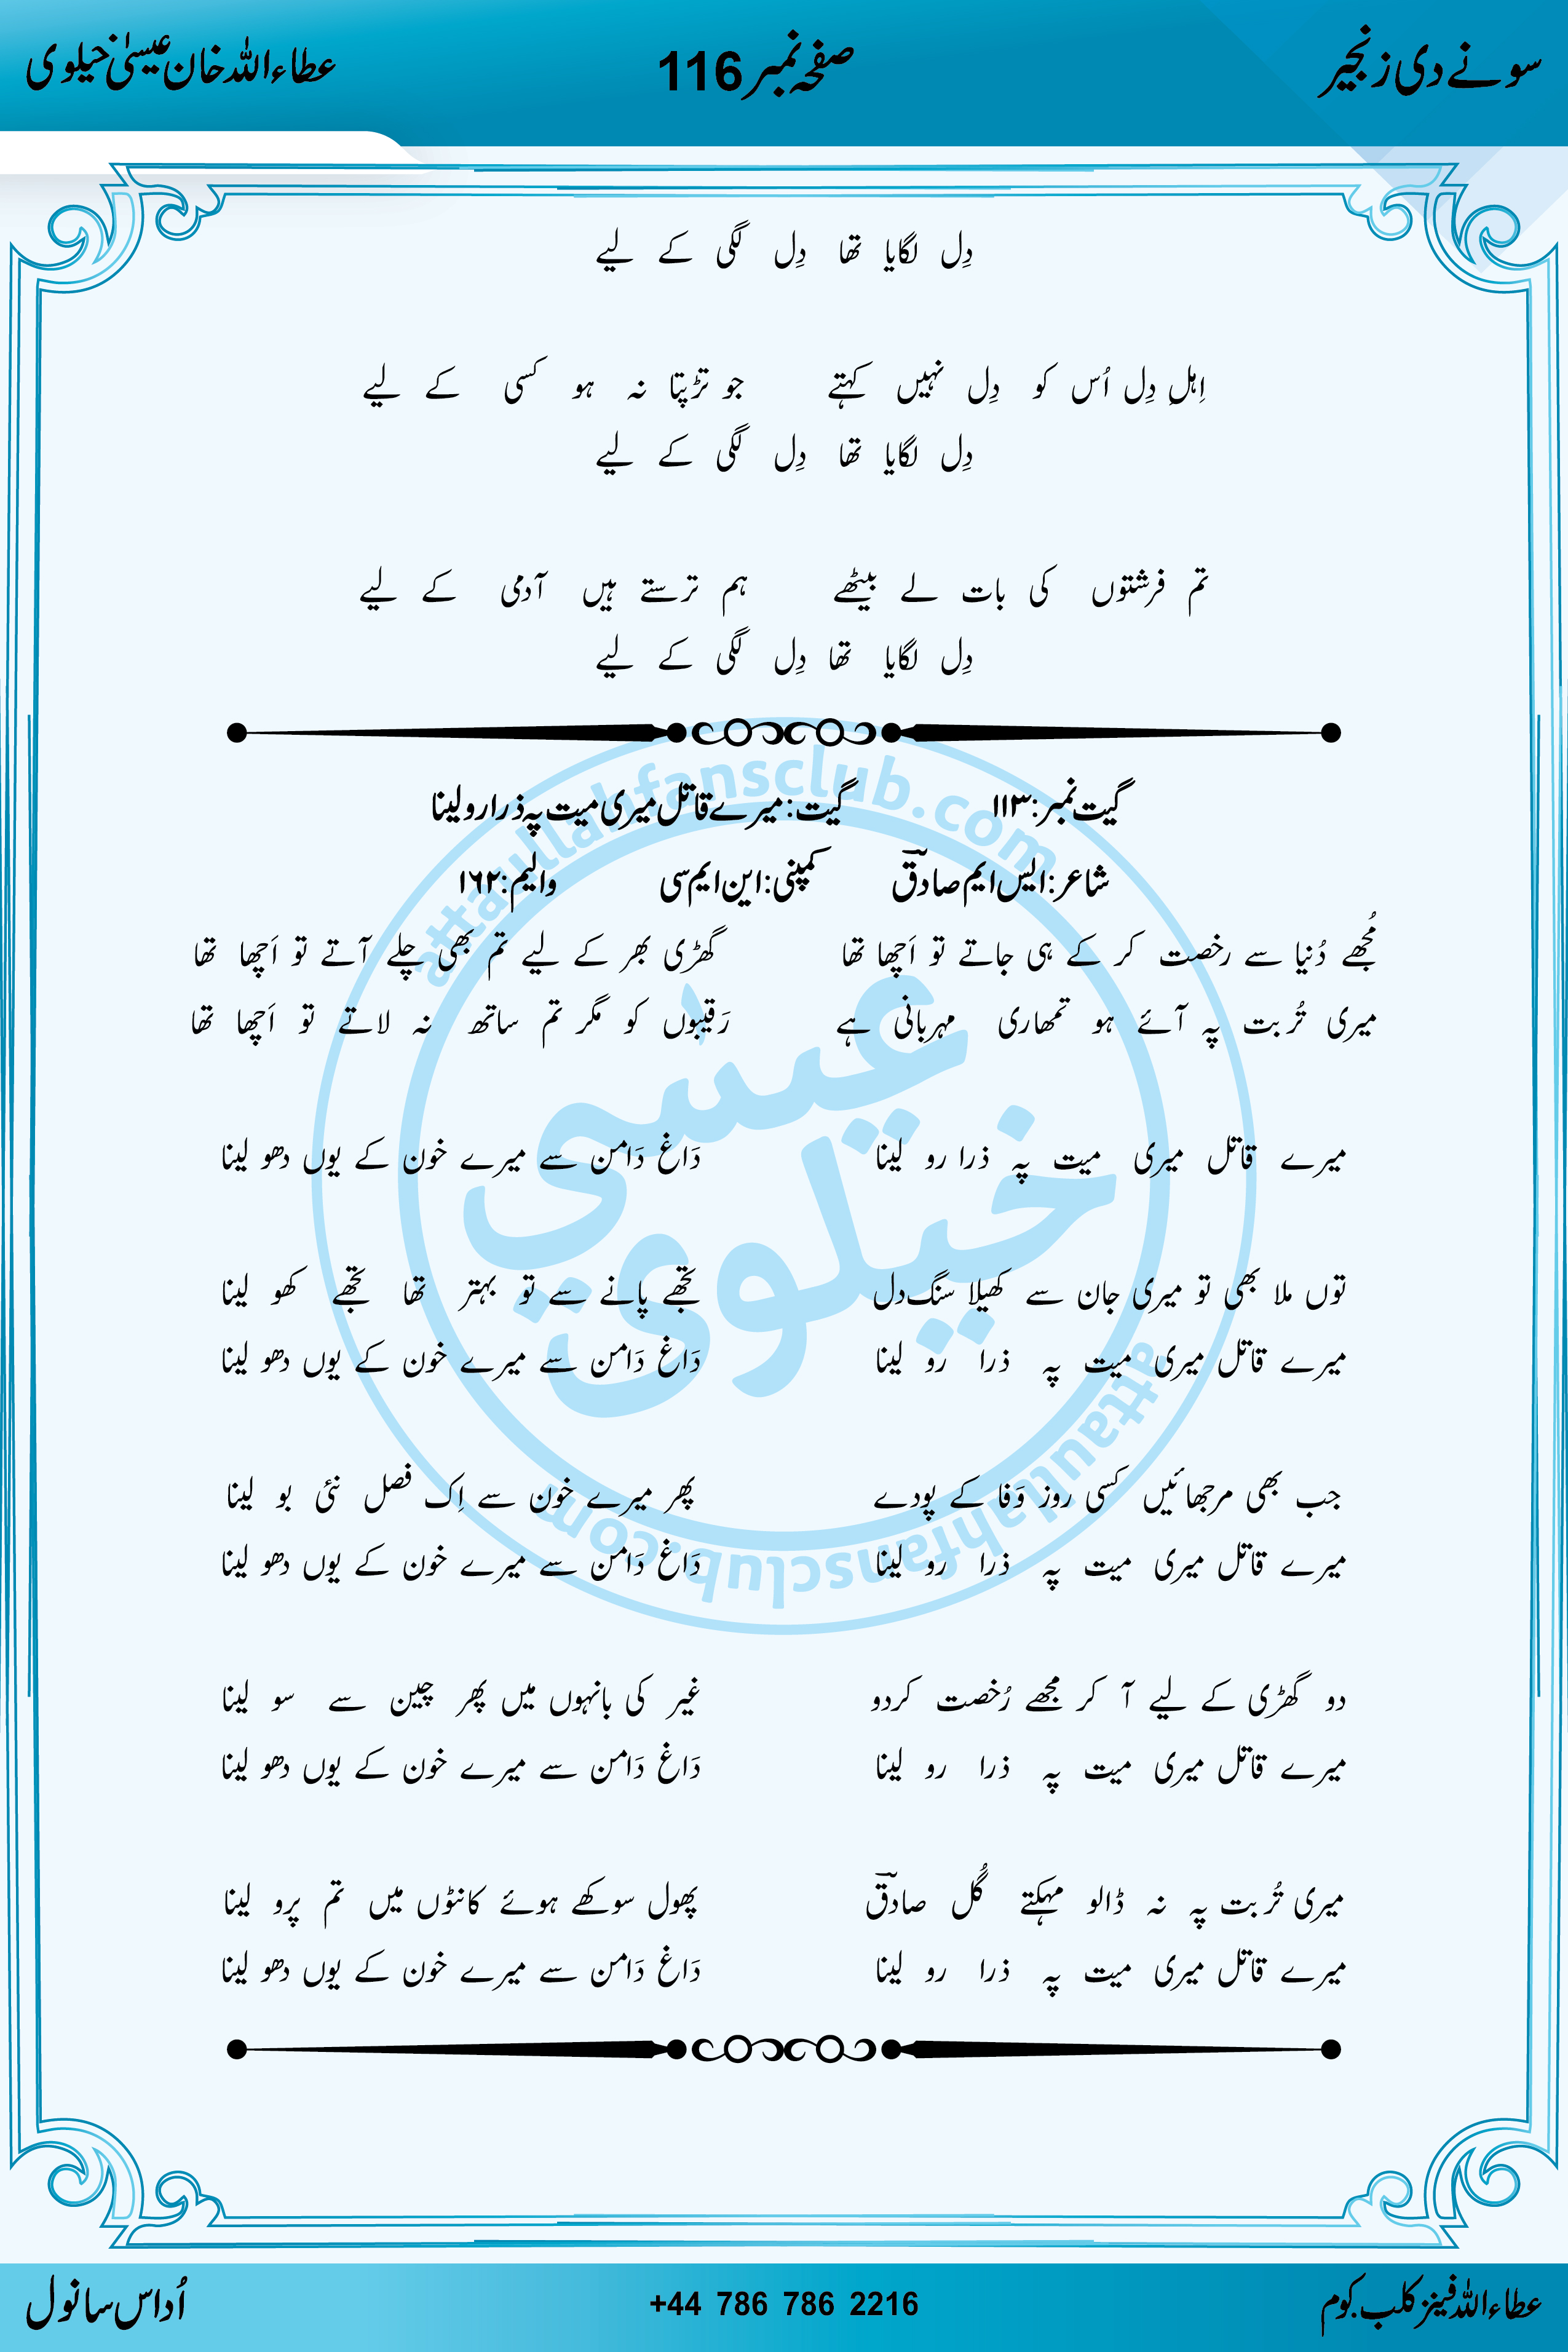 سونے دی زنجیر صفحہ نمبر 116 عطاءاللہ خان عیسیٰ خیلوی
دِل لگایا تھا دِل لگی کے لیے
اِہلِ دِل اُس کو دِل نہیں کہتے جو تڑپتا نہ ہو کسی کے لیے
دِل لگایا تھا دِل لگی کے لیے
تم فرشتوں کی بات لے بیٹھے ہم ترستے ہیں آدمی کے لیے
دِل لگایا تھا دِل لگی کے لیے
گیت نمبر: ۱۱۳ گیت: میرے قاتل میری میت پہ ذرا رو لینا
شاعر: ایس ایم صادقؔ کمپنی: این ایم سی والیم: ۱۶۲
مُجھے دُنیا سے رخصت کر کے ہی جاتے تو اَچھا تھا گھڑی بھر کے لیے تم بھی چلے آتے تو اَچھا تھا
میری تُربت پہ آئے ہو تمھاری مہربانی ہے رَقیبوں کو مگر تم ساتھ نہ لاتے تو اَچھا تھا
میرے قاتل میری میت پہ ذرا رو لینا دَاغ دَامن سے میرے خون کے یوں دھو لینا
توں ملا بھی تو میری جان سے کھیلا سنگ دل تجھے پانے سے تو بہتر تھا تجھے کھو لینا
میرے قاتل میری میت پہ ذرا رو لینا دَاغ دَامن سے میرے خون کے یوں دھو لینا
جب بھی مرجھائیں کسی روز وَفا کے پودے پھر میرے خون سے اِک فصل نئی بو لینا
میرے قاتل میری میت پہ ذرا رو لینا دَاغ دَامن سے میرے خون کے یوں دھو لینا
دو گھڑی کے لیے آ کر مجھے رُخصت کردو غیر کی بانہوں میں پھر چین سے سو لینا
میرے قاتل میری میت پہ ذرا رو لینا دَاغ دَامن سے میرے خون کے یوں دھو لینا
میری تُربت پہ نہ ڈالو مہکتے گُل صادقؔ پھول سوکھے ہوئے کانٹوں میں تم پرو لینا
میرے قاتل میری میت پہ ذرا رو لینا دَاغ دَامن سے میرے خون کے یوں دھو لینا
attaullahfansclub.com
عیسٰی
خیلوی
attaullahfansclub.com
عطاءاللہ فینز کلب.کوم +44 786 786 2216 اُداس سانول